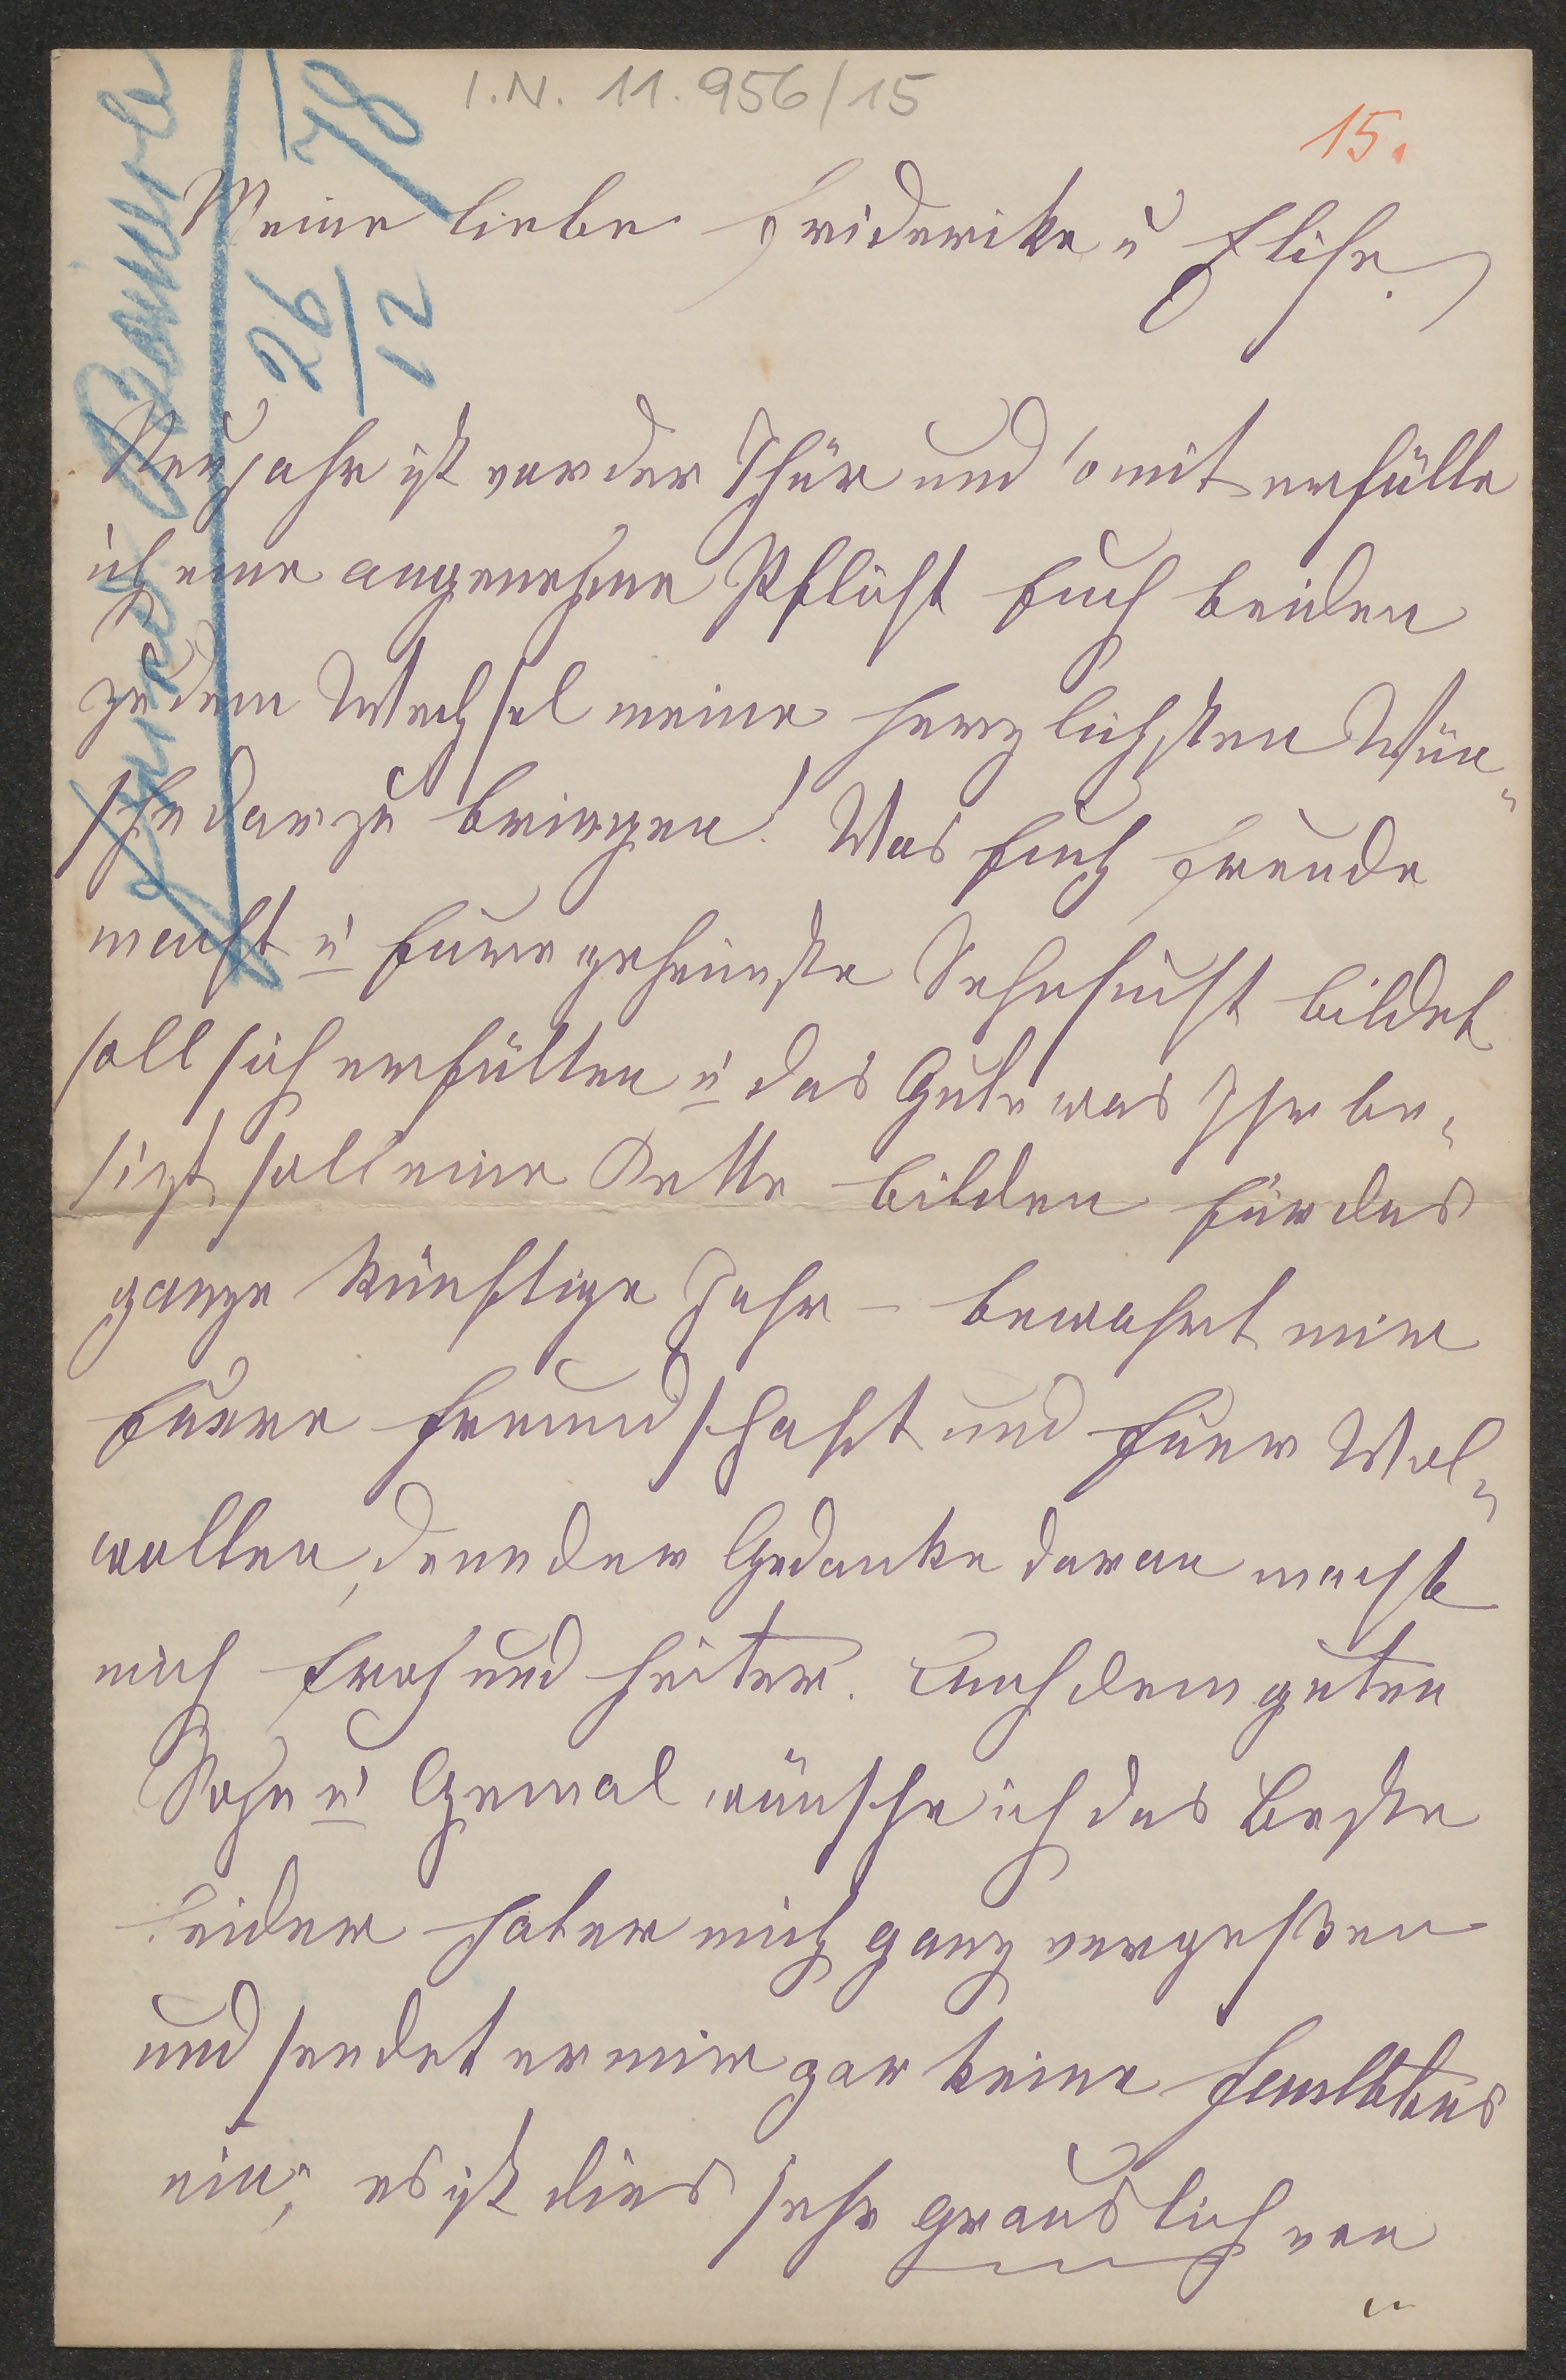 I.N. 11.956/15
15.
26/12 78
Meine liebe Friderike u Elise.
Neujahr ist vor der Thür und somit erfülle
ich eine angenehme Pflicht Euch beiden
zu dem Wechsel meine herzlichsten Wün„
sche dar zu bringen! Was Euch Freude
macht u Eure geheimste Sehnsucht bildet
soll sich erfüllen u das Gute was Ihr be„
sizt, soll eine Kette bilden für das
ganze künftige Jahr – bewahrt mir
Euere Freundschaft und Euer Wol„
wollen, denn der Gedanke daran macht
mich froh und heiter. Auch dem guten
Sohn u Gemal wünsche ich das Beste
leider hat er mich ganz vergeßen
und sendet er mir gar keine
ein; es ist dies sehr grauslich von